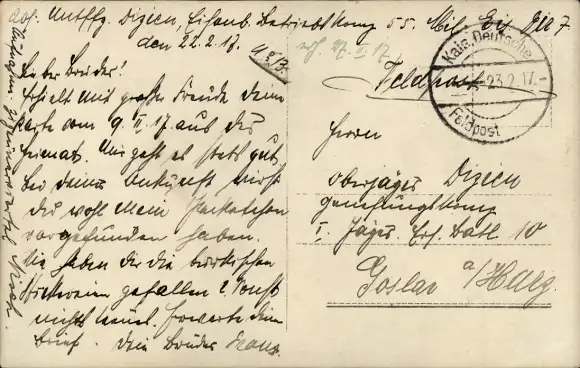 Abs. Uttffz. Dizien, Eisenb. Betriebs Komp 55. Mil. Eis. Dir 7
den 22.2.17.
Lieber Bruder!
Erhielt mit großer Freude deine
Karte vom 9. II. 17 aus der
Heimat. Mir geht es stets gut,
bei deiner Ankunft wirst
du wohl mein Paketchen
vorgefunden haben.
Wie haben dir die türkischen
gefallen? Sonst
nichts neues. Erwarte dein
Brief. Dein Bruder Hans.
Feldpost
Kais. Deutsche
23.2.17.
Feldpost
Herrn
Oberjäger Dizien
Genesungskomp
I. Jäger. Ers. Batl. 10
Goslar a/Harz.